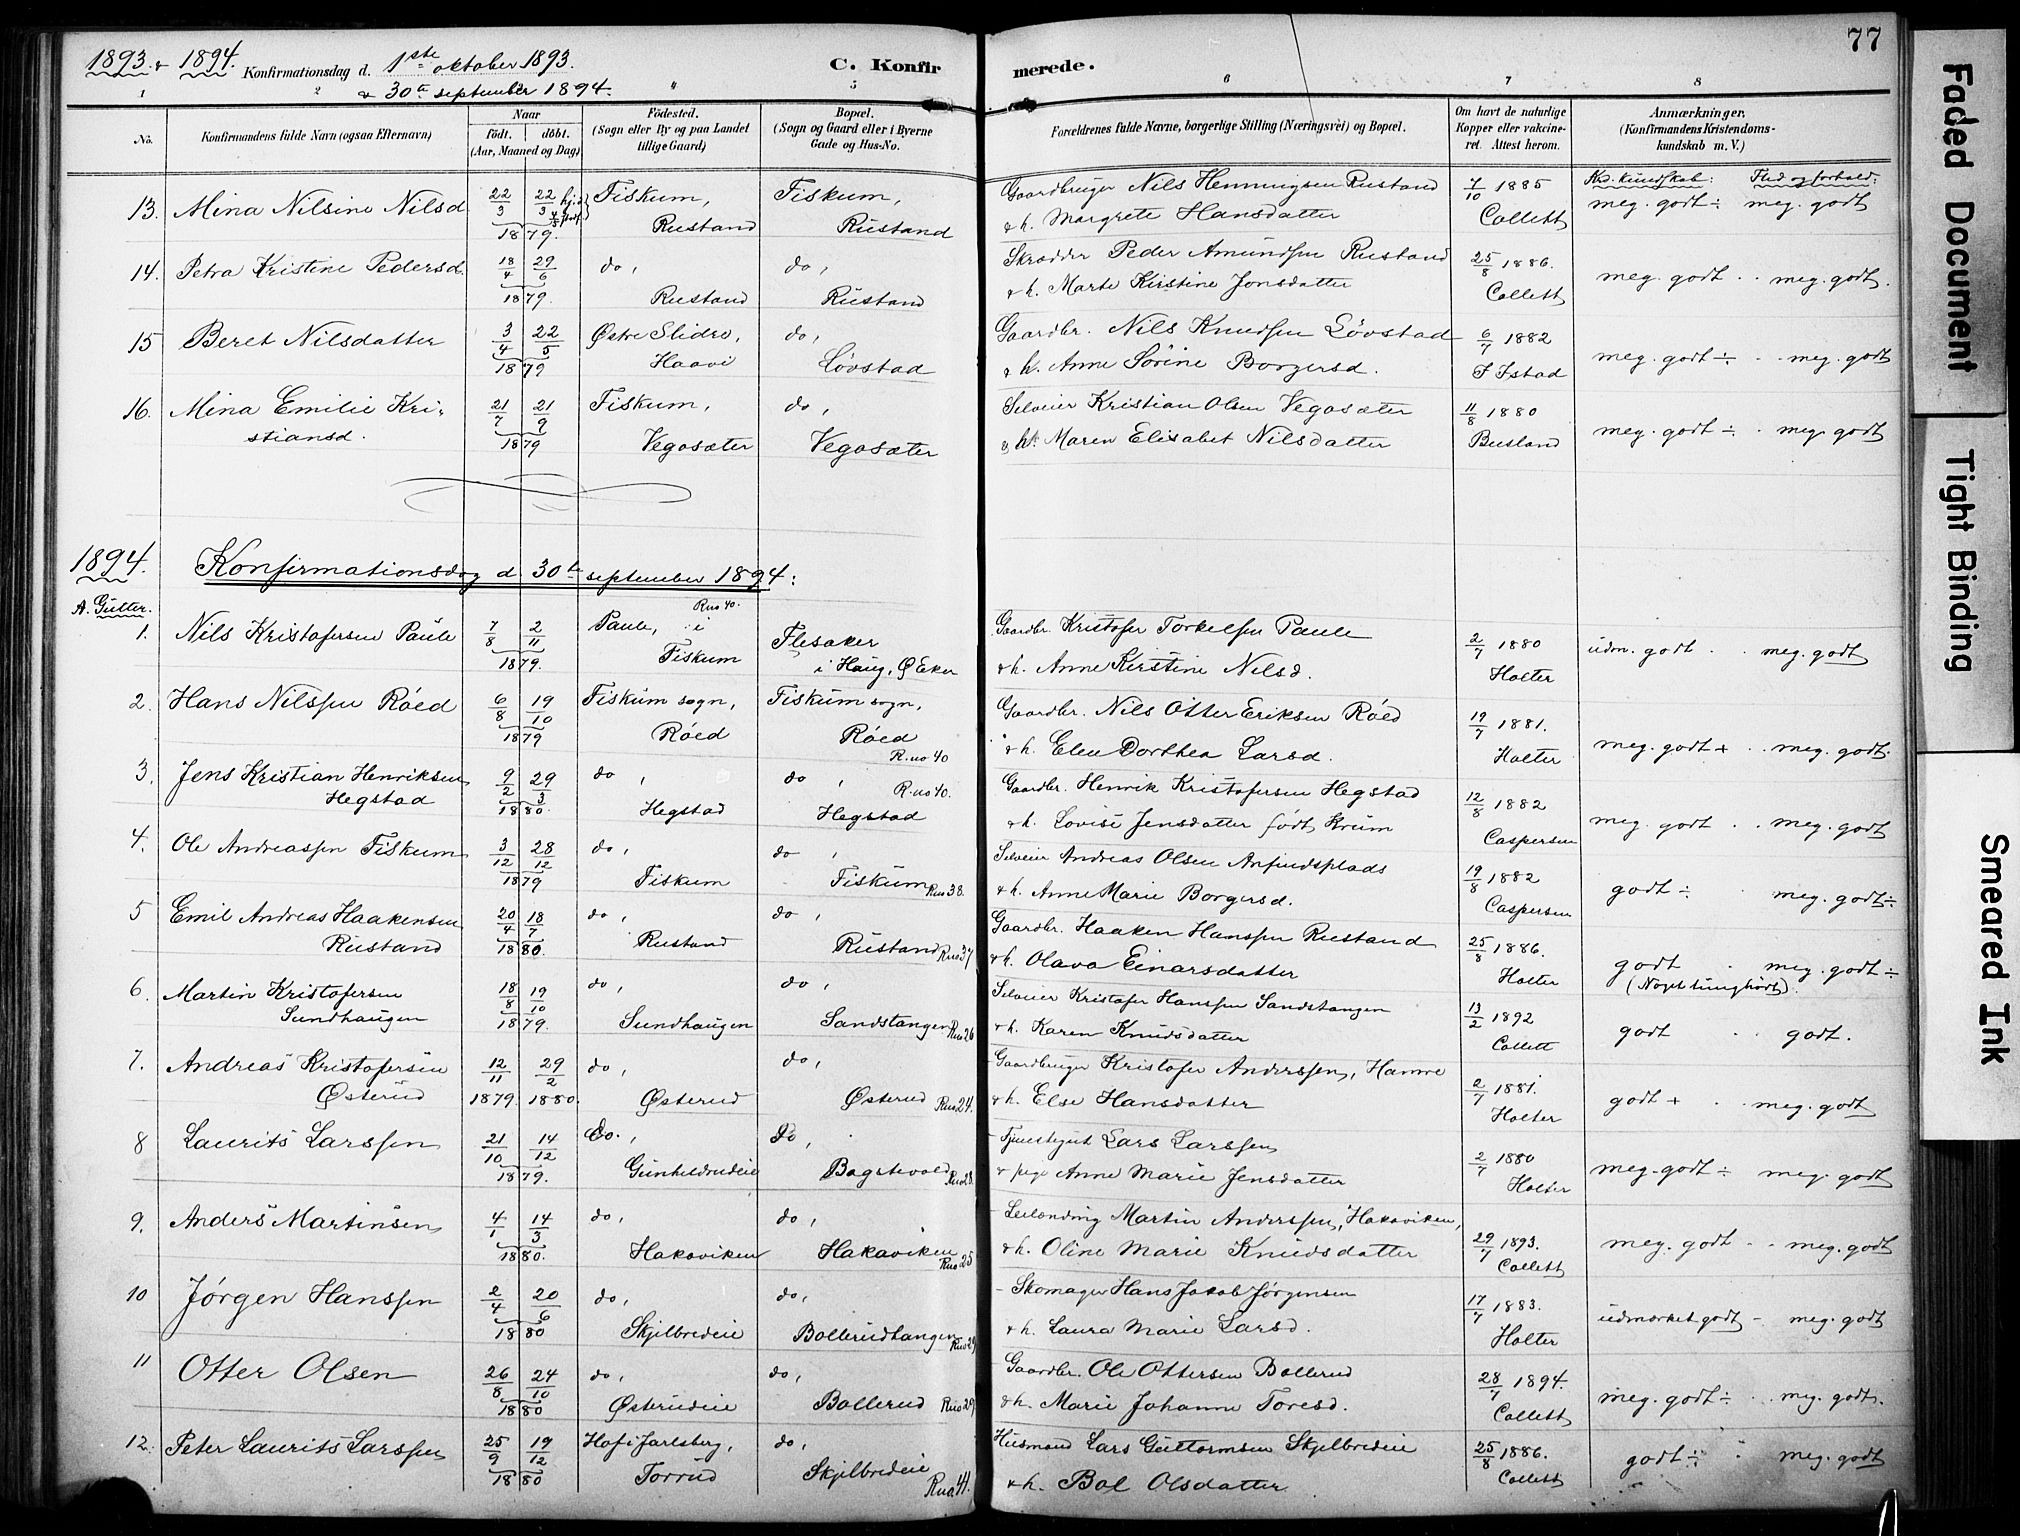 77
1893 & 1894. Konfirmationsdag d. 1ste oktober 1893. C. Konfirmerede.
& 30te september 1894.
1 2 5 6 7 8
No. Konfirmandens fulde Navn (ogsaa Efternavn) Naar født. døbt. (Aar, Maaned og Dag) Fødested. (Sogn eller By og paa Landet tillige Gaard) Bopæl. (Sogn og Gaard eller i Byerne Gade og Hus-No. Forældrenes fulde Navne, borgerlige Stilling (Næringsvei) og Bopæl. Om havt de naturlige Kopper eller vakcineret. Attest herom. Anmærkninger. (Konfirmandens Kristendomskundskab m. V.)
Krd. kundskab: Flid og forhold:
13. Mina Nilsine Nilsd. 22/3 22/3 1879. Fiskum, Rustand Fiskum, Rustand Gaardbruger Nils Henningsen Rustand & h. Margrete Hansdatter 7/10 1885 Collett meg. godt ÷ meg. godt
14. Petra Kristine Pedersd. 18/4 29/6 1879. do, Rustand do, Rustand Skrædder Peder Amundsen Rustand & h. Marte Kirstine Jonsdatter 25/8 1886. Collett meg. godt . . meg. godt.
15 Beret Nilsdatter 3/4 22/5 1879 Østre Slidre, Haavi do, Løvstad Gaardbr. Nils Knudsen Løvstad & h. Anne Sørine Borgersd. 6/7 1882 meg. godt ÷ . meg. godt
16. Mina Emilie Kristiansd. 21/7 21/9 1879 Fiskum, Vegosæter do, Vegosæter Selveier Kristian Olsen Vegosæter & h. Maren Elisabet Nilsdatter 11/8 1880 Busland meg. godt ÷ . meg. godt
1894. Konfirmationsdag d. 30te september 1894:
A. Gutter.
1. Nils Kristofersen Paule 7/8 2/11 1879. Paule, i Fiskum Rno 40. Flesaker i Haug, Ø Eker Gaardbr. Kristofer Torkelsen Paule & h. Anne Kirstine Nilsd. 2/7 1880 Holter udm. godt . . meg. godt
2. Hans Nilssen Røed 6/8 19/10 1879 Fiskum sogn, Røed Fiskum sogn, Røed R.no 40 Gaardbr. Nils Otter Eriksen Røed & h. Elen Dorthea Larsd. 19/7 1881. Holter meg. godt + . . meg. godt.
3. Jens Kristian Henriksen Hegstad 9/2 29/3 1880. do, Hegstad do, R.no 40. Hegstad Gaardbr. Henrik Kristofersen Hegstad & h. Lovise Jensdatter født Krum 12/8 1882 Caspersen meg. godt . . meg. godt
4. Ole Andreassen Fiskum 3/12 28/12 1879 do, Fiskum do, Fiskum Rno 38. Selveier Andreas Olsen Anfindsplads & h. Anne Marie Borgersd. 19/8 1882 Caspersen godt ÷ . meg. godt ÷
5 Emil Andreas Haakensen Rustand 20/4 18/7 1880. do, Rustand do, Rustand Rno 37 Gaardbr. Haaken Hanssen Rustand & h. Olava Einarsdatter 25/8 1886. Holter godt . meg. godt ÷
6. Martin Kristofersen Sundhaugen 18/8 19/10 1879. do, Sundhaugen do, Sandstangen Rno 26 Selveier Kristofer Hanssen Sandstangen & h. Karen Knudsdatter 13/2 1892 Collett godt . . godt.
7. Andreas Kristofersen Østerud 12/11 1879. 29/2 1880. do, Østerud do, Østerud Rno 24. Gaardbruger Kristofer Anderssen, Hamre & h. Else Hansdatter 2/7 1881. Holter godt + . . meg. godt
8 Laurits Larssen 21/10 14/12 1879. Do., Gunhildrudeie Do, Bagstevold Rno 28. Tjenestegut Lars Larssen & pige Anne Marie Jensdatter 2/7 1880 Holter meg. godt ÷ . meg. godt
9. Anders Martinsen 4/1 14/3 1880. do, Hakaviken do, Hakaviken Rno 25 Leilænding Martin Anderssen, Hakaviken, & h. Oline Marie Knudsdatter 29/7 1893. Collett meg. godt . . meg. godt
10 Jørgen Hanssen 2/4 20/6 1880 do, Skjelbredeie do, Bollerudtangen Rno 29 Skomager Hans Jakob Jørgensen & h. Laura Marie Larsd. 17/7 1883. Holter udmærket godt - meg. godt
11 Otter Olsen 26/8 24/10 1880 do, Østerudeie do, Bollerud Rno 29 Gaardbr. Ole Ottersen Bollerud & h. Marie Johanne Toresd. 28/7 1894. Collett meg. godt ÷ . meg. godt.
12. Peter Laurits Larssen 25/9 19/12 1880 Hof i Jarlsberg, Torrud do, Skjelbredeie Rno 41. Husmand Lars Guttormsen Skjelbredeie & h. Bol Olsdatter 25/8 1886. Collett godt ÷ . meg. godt
Faded Document
Tight Binding
Smeared Ink